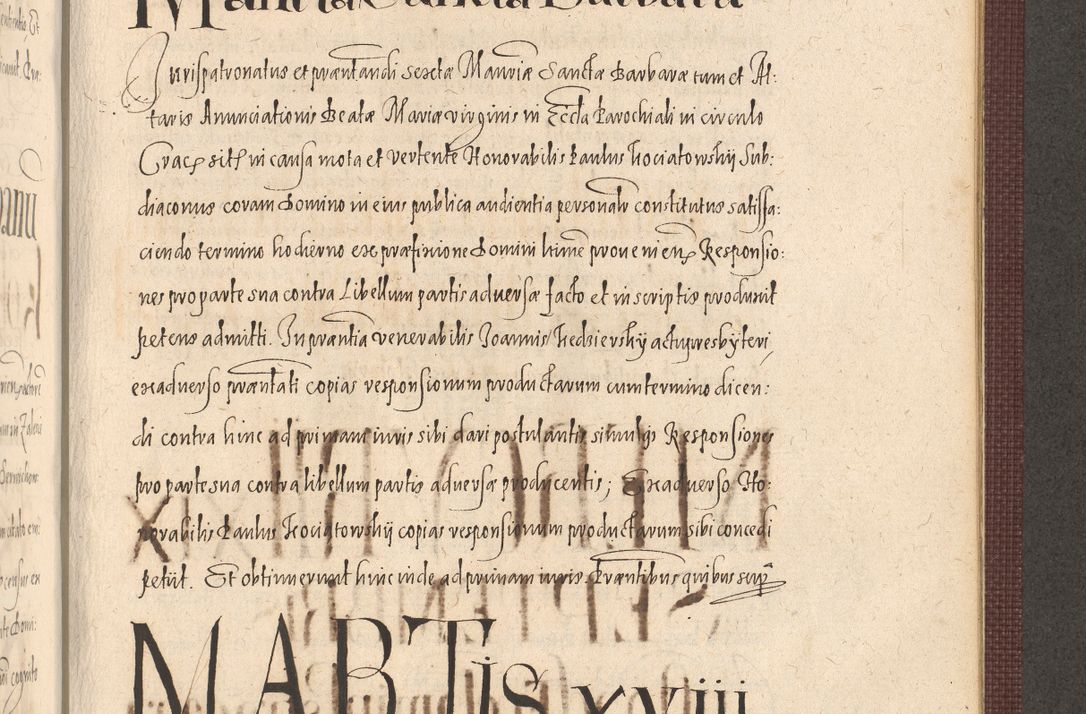 Mansiæ Sancta Barbara
Jurispatronatus et præntandi sextæ Mansiæ Sanctæ Barbaræ tum et Al:
taris Anunciationis Beatæ Mariæ virginis in Eccla Parochiali in circulo
Crac sitꝭ in causa mota et vertente Honorabilis Paulus Kociatowskij Sub:
diaconus coram Domino in eius publica audientia personalr constitutus satisfa:
ciendo termino hodierno ex præfixione Domini hinc provenien Responsio:
nes pro parte sua contra Libellum partis adversæ facto et in scriptis produxit
petens admitti. In præntia venerabilis Joannis Kedzierskij actu presbyteri
ex adverso præntati copias responsionum productarum cum termino dicen:
di contra hinc ad primam iuris sibi dari postulantis similiqꝫ Responsiones
pro parte sua contra libellum partis adversæ producentis; Et ex adverso Ho:
norabilis Paulus Kociatowskij copias responsionum productarum sibi concedi
petiit. Et obtinuerunt hinc inde ad primam iuris Præntibus quibus supra
MARTIS XVIII